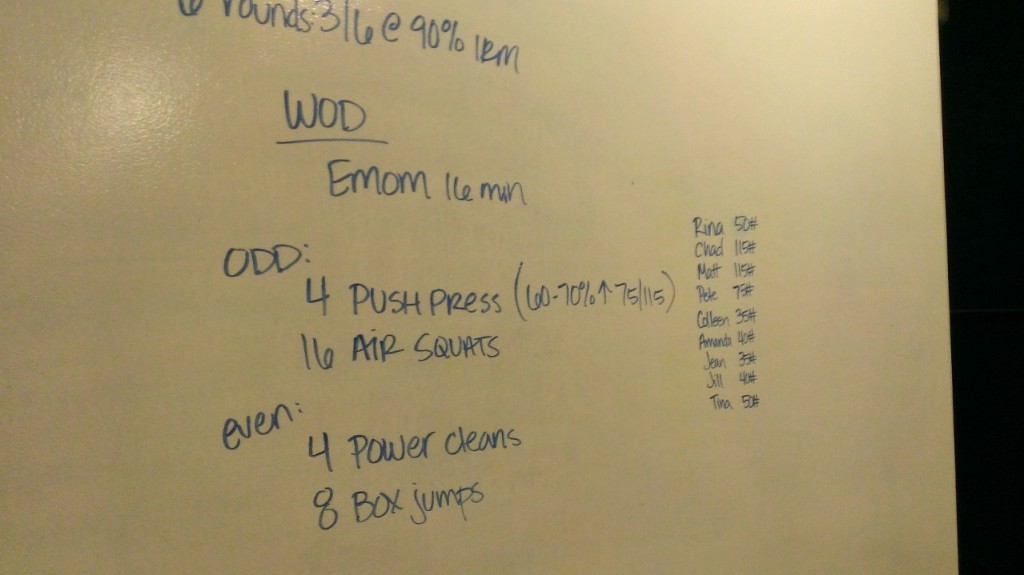 6 rounds: 3/6 @ 90% 1RM
WOD
Emom 16 min
ODD:
4 PUSH PRESS (60-70% ↑ 75/115)
16 AIR SQUATS
even:
4 Power cleans
8 Box jumps
Rina 50#
Chad 115#
Matt 115#
Pete 75#
Colleen 35#
Amanda 40#
Jean 35#
Jill 40#
Tina 50#